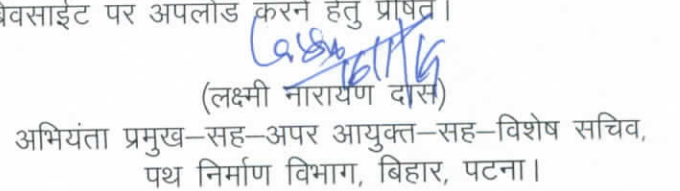 वेवसाईट पर अपलोड करने हेतु प्रेषित।
(लक्ष्मी नारायण दास)
अभियंता प्रमुख–सह–अपर आयुक्त–सह–विशेष सचिव,
पथ निर्माण विभाग, बिहार, पटना।